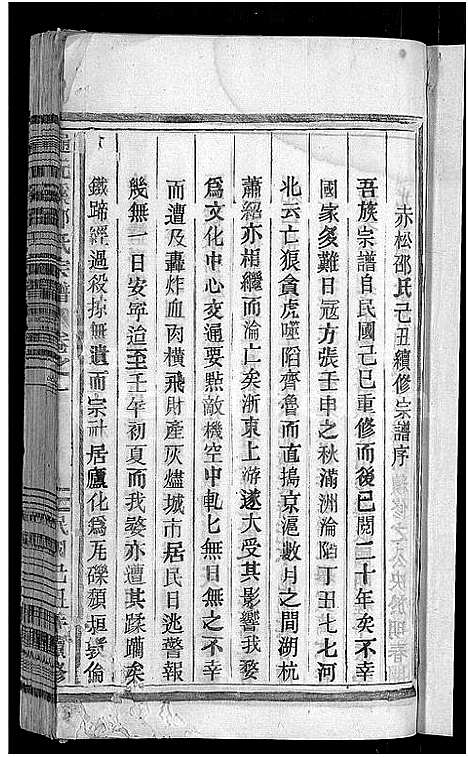 赤松邵氏己丑續修宗譜序
吾族宗譜自民國己巳重修而後已閱二十年矣不幸
國家多難日冦方張壬申之秋滿洲淪陷丁丑七七河
北云亡狼貪虎噬陷齊魯而直搗京滬數月之間湖杭
蕭紹亦相繼而淪亡矣浙東上游遂大受其影響我婺
爲文化中心交通要點敵機空中軋匕無日無之不幸
而遭及轟炸血肉橫飛財產灰燼城市居民日逃警報
幾無一日安寧迨至壬午初夏而我婺亦遭其蹂躪矣
鐵蹄經過役掠無遺而宗社居廬化爲瓦礫頹垣
倫
氏宗譜
民國己丑
續修